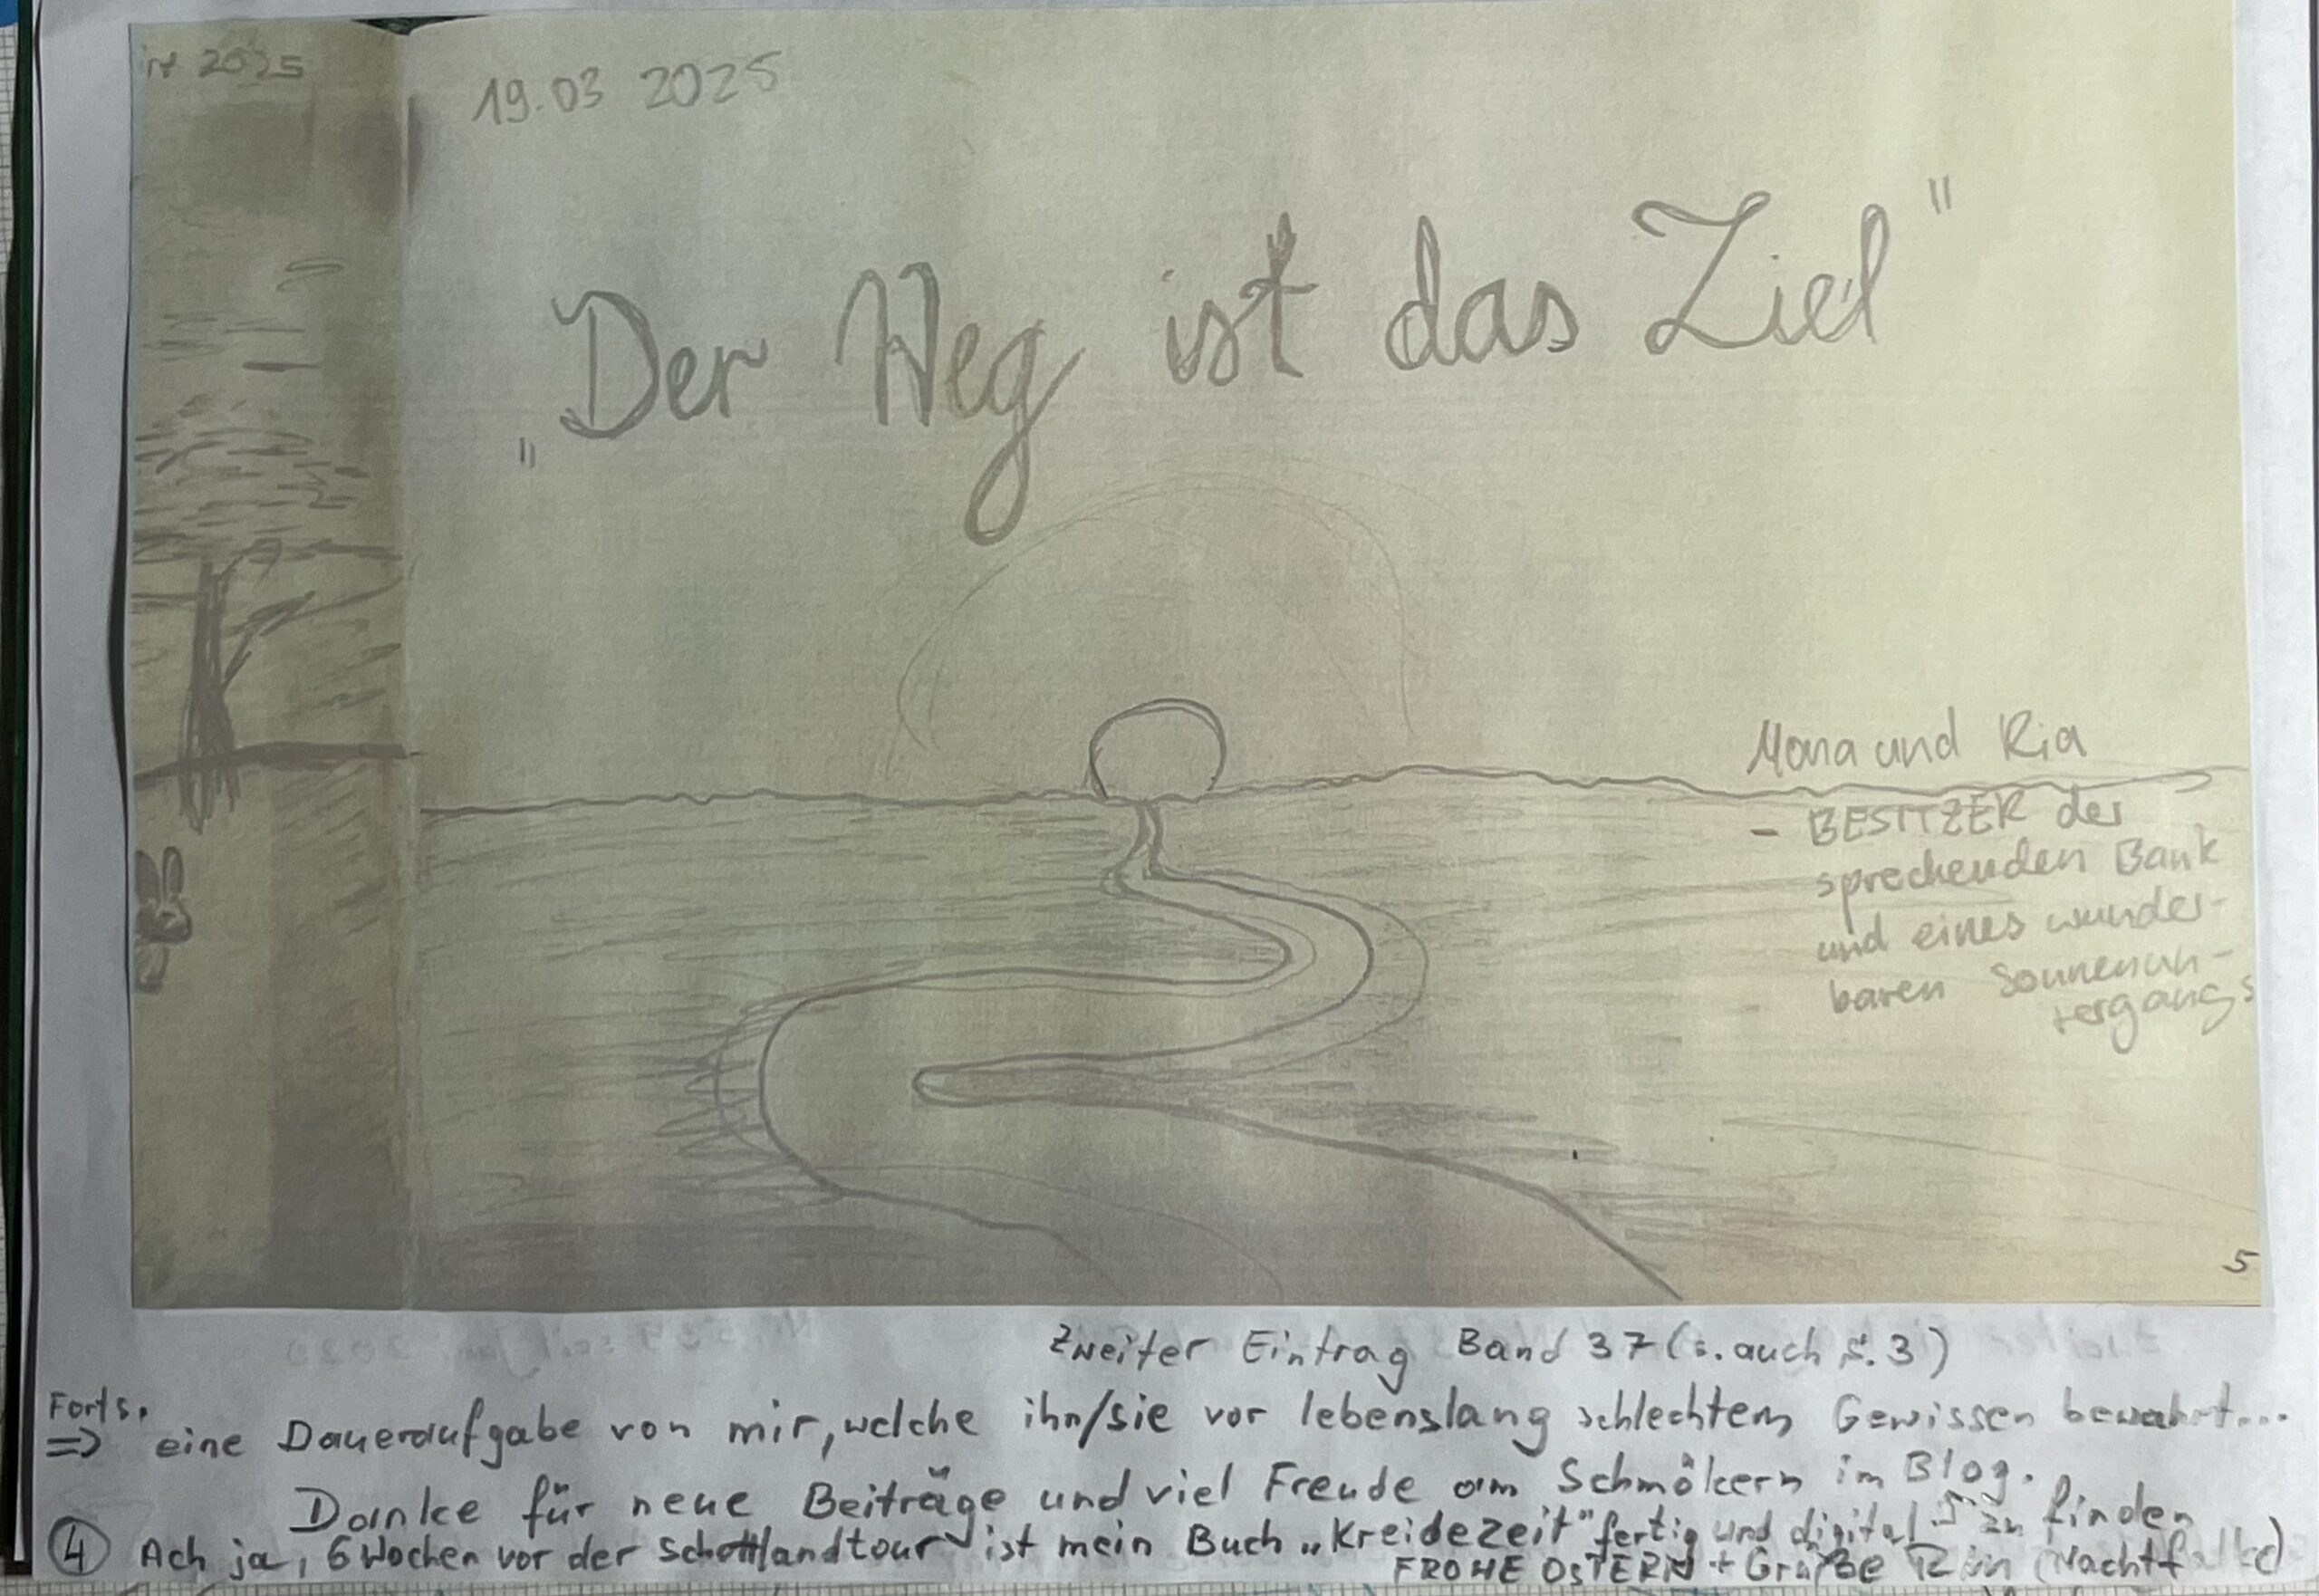 2025
19.03 2025
„Der Weg ist das Ziel"
Mona und Ria
- BESITZER der
sprechenden Bank
und eines wunder-
baren Sonnenun-
tergangs
5
Zweiter Eintrag Band 37 (s. auch S. 3)
Forts.
⇒ eine Daueraufgabe von mir, welche ihn/sie vor lebenslang schlechtem Gewissen bewahrt...
Danke für neue Beiträge und viel Freude am Schmökern im Blog.
④ Ach ja, 6 Wochen vor der Schottlandtour ist mein Buch „Kreidezeit" fertig und digital zu finden
FROHE OSTERN + Grüße